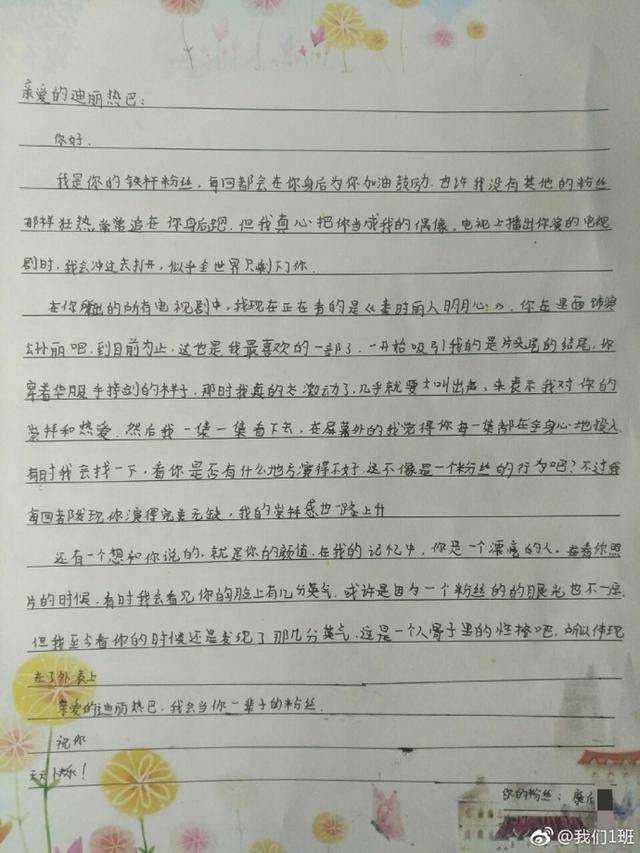 亲爱的迪丽热巴：
你好．
我是你的铁杆粉丝，每回都会在你身后为你加油鼓励．也许我没有其他的粉丝
那样狂热，常常追在你身后跑．但我真心把你当成我的偶像，电视上播出你演的电视
剧时，我会冲过去打开，似乎全世界只剩下了你．
在你演的所有电视剧中，我现在正在看的是《秦时丽人明月心》，你在里面饰演
公孙丽吧．到目前为止，这也是我最喜欢的一部了．一开始吸引我的是片头尾的结尾，你
穿着华服手持剑的样子，那时我真的太激动了，几乎就要大叫出声，来表示我对你的
崇拜和热爱．然后我一集一集看下去，在屏幕外的我觉得你每一集都在全身心地投入．
有时我会找一下，看你是否有什么地方演得不好．这不像是一个粉丝的行为吧？不过我
每回都发现你演得完美无缺，我的崇拜感也一路上升
还有一个想和你说的，就是你的颜值．在我的记忆中，你是一个漂亮的人．在看你照
片的时候，有时我会看见你的脸上有几分英气．或许是因为一个粉丝的的眼光也不一定．
但我至今看你的时候还是发现了那几分英气．这是一个人骨子里的性格吧，所以体现
在了外表上
亲爱的迪丽热巴，我会当你一辈子的粉丝．
祝你
天天快乐！
你的粉丝：
@我们1班